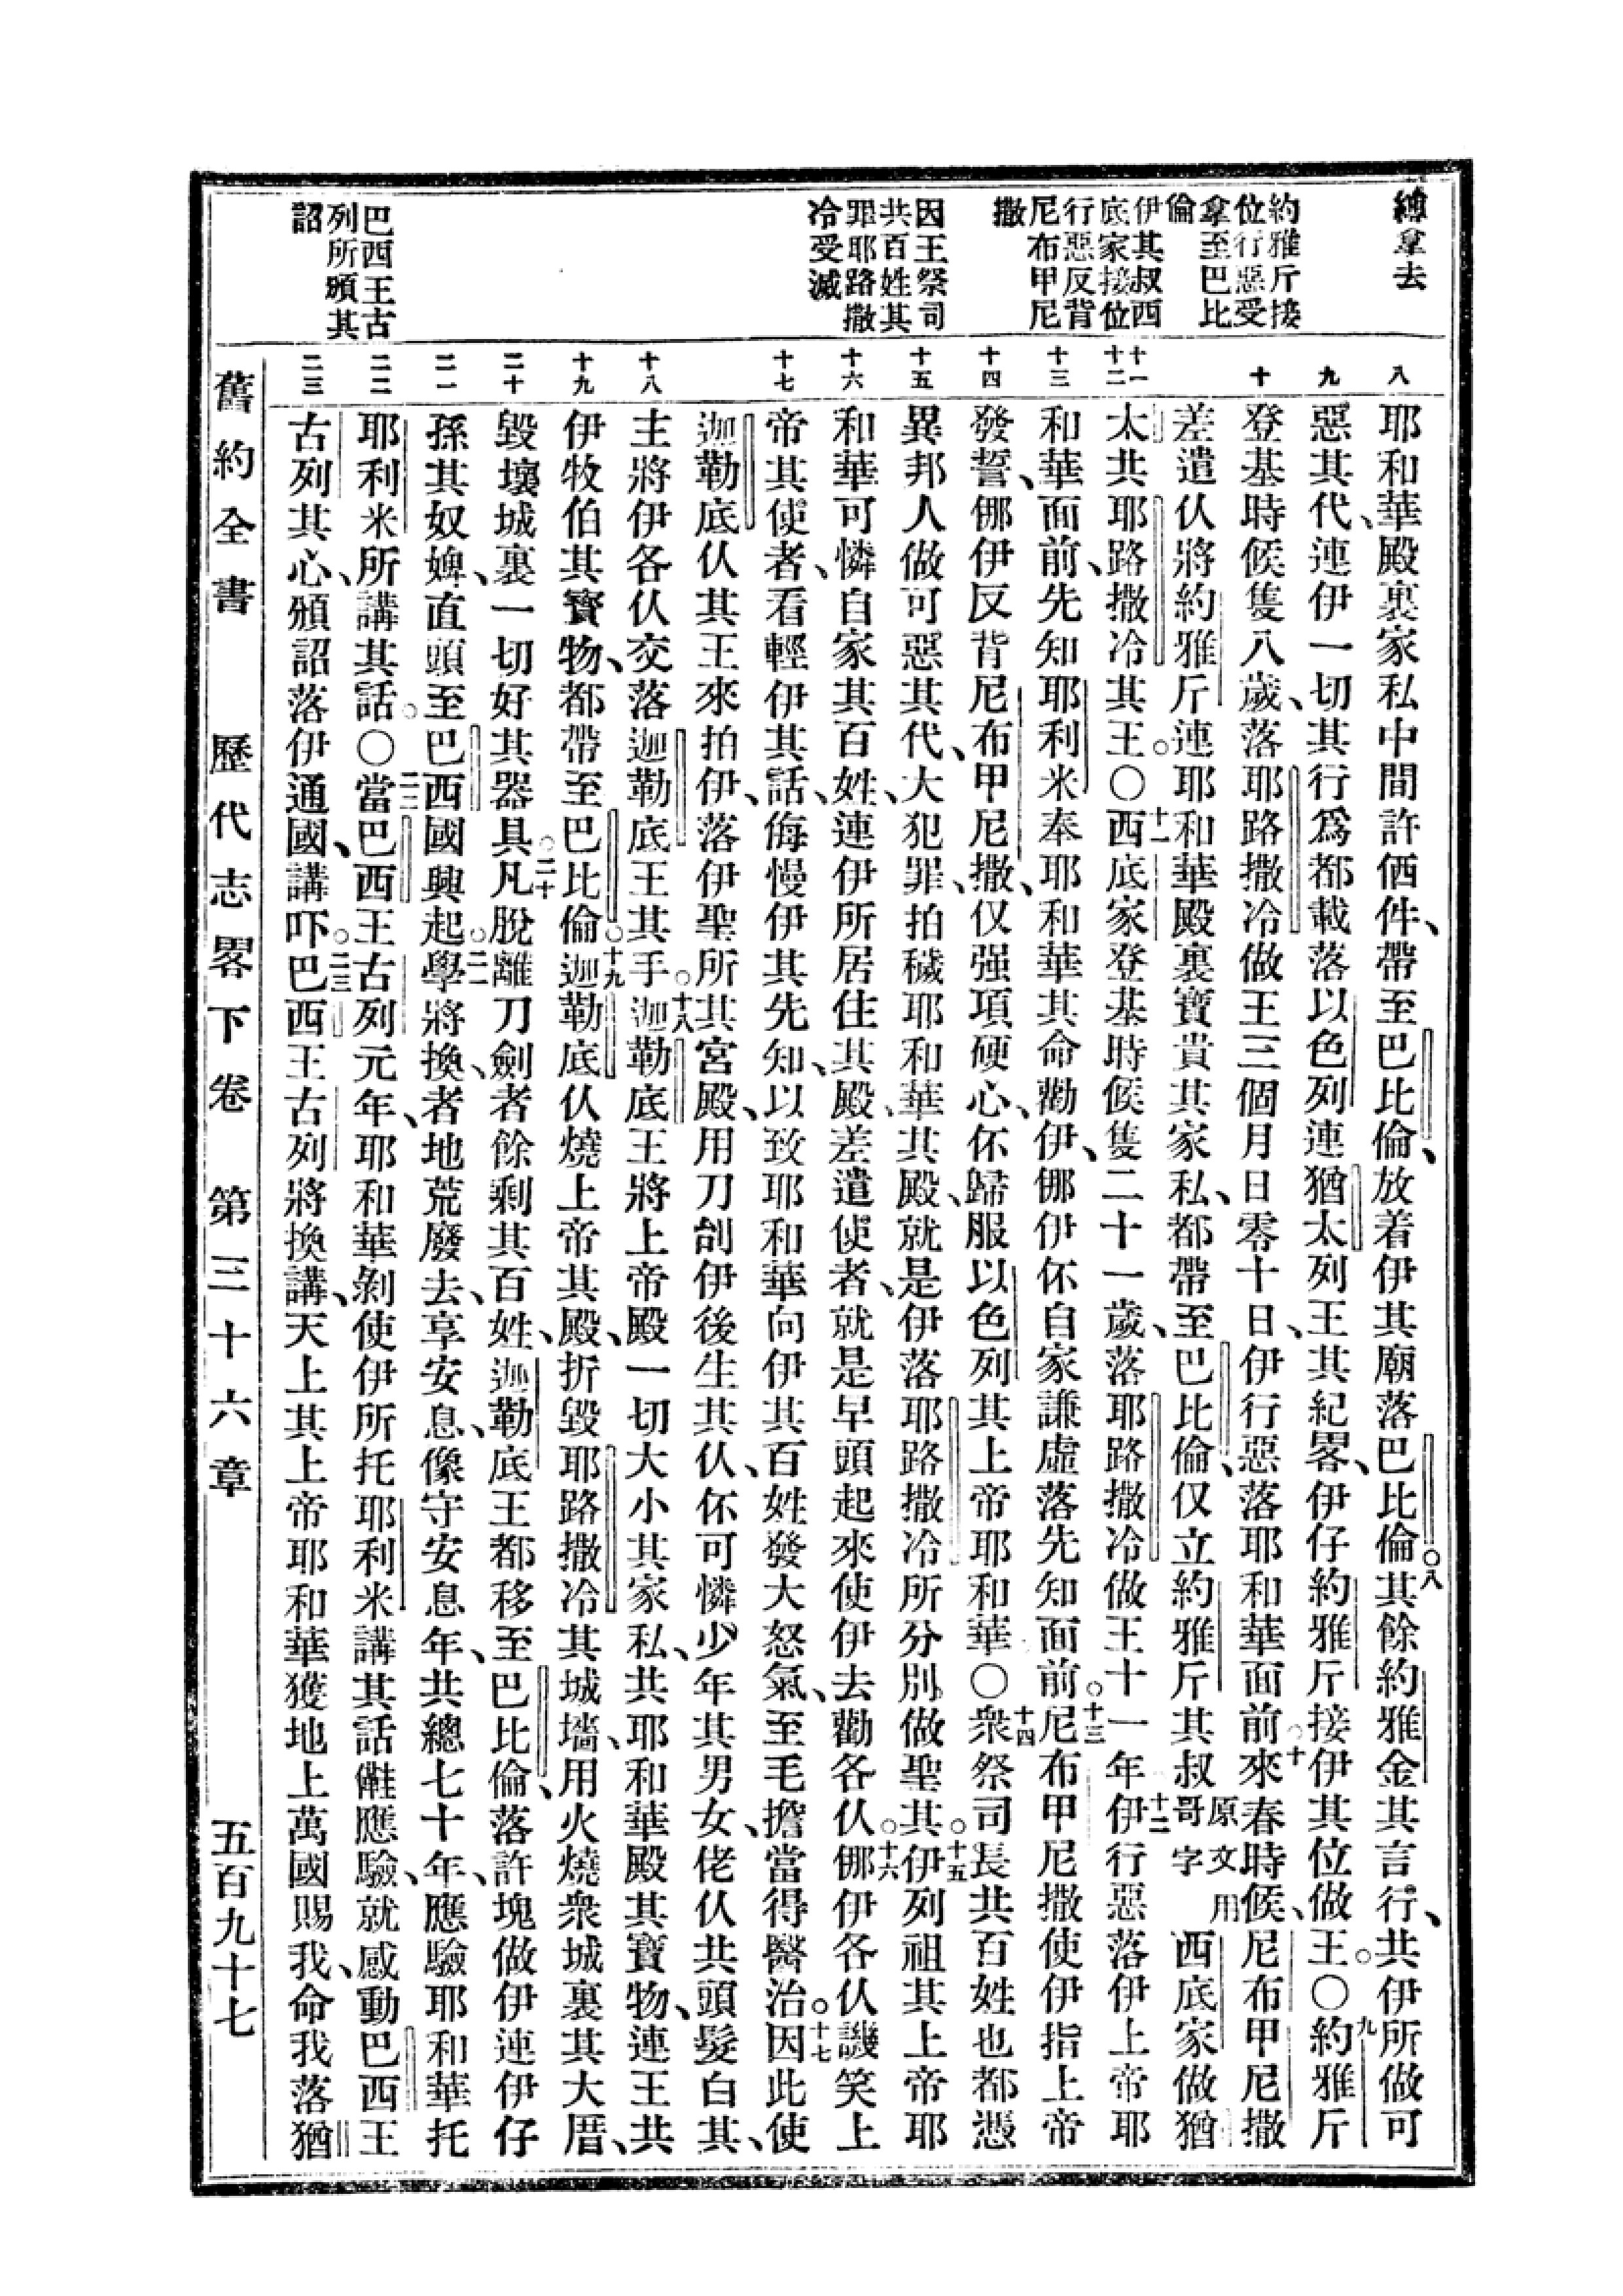 總拿去
約雅斤接
位行惡受
拿至巴比
倫
伊其叔西
底家接位
行惡反背
尼布甲尼
撒
因王祭司
共百姓其
罪耶路撒
冷受滅
巴西王古
列所頒其
詔
八
九
十
十一
十二
十三
十四
十五
十六
十七
十八
十九
二十
二一
二二
二三
耶和華殿裏家私中間許𠇾件、帶至巴比倫、放着伊其廟落巴比倫。八其餘約雅金其言行、共伊所做可
惡其代、連伊一切其行爲都載落以色列連猶太列王其紀畧、伊仔約雅斤接伊其位做王。〇九約雅斤
登基時候隻八歲、落耶路撒冷做王三個月日零十日、伊行惡落耶和華面前。十來春時候、尼布甲尼撒
差遣仈將約雅斤連耶和華殿裏寶貴其家私、都帶至巴比倫、仅立約雅斤其叔原文用哥字西底家做猶
太共耶路撒冷其王。〇十一西底家登基時候隻二十一歲、落耶路撒冷做王十一年十二伊行惡落伊上帝耶
和華面前、先知耶利米奉耶和華其命勸伊、㑚伊伓自家謙虛落先知面前。十三尼布甲尼撒使伊指上帝
發誓、㑚伊反背尼布甲尼撒、仅强項硬心、伓歸服以色列其上帝耶和華〇十四衆祭司長共百姓也都憑
異邦人做可惡其代、大犯罪、拍穢耶和華其殿、就是伊落耶路撒冷所分別做聖其。十五伊列祖其上帝耶
和華可憐自家其百姓、連伊所居住其殿、差遣使者、就是早頭起來使伊去勸各仈。十六㑚伊各仈譏笑上
帝其使者、看輕伊其話、侮慢伊其先知、以致耶和華向伊其百姓發大怒氣、至毛擔當得醫治。十七因此使
迦勒底仈其王來拍伊、落伊聖所其宮殿、用刀刣伊後生其仈、伓可憐少年其男女、佬仈共頭髮白其、使
主將伊各仈交落迦勒底王其手。十八迦勒底王將上帝殿一切大小其家私、共耶和華殿其寶物、連王共
伊牧伯其寶物、都帶至巴比倫。十九迦勒底仈燒上帝其殿、折毀耶路撒冷其城墻、用火燒衆城裏其大厝、
毀壞城裏一切好其器具。二十凡脫離刀劍者餘剩其百姓、迦勒底王都移至巴比倫、落許塊做伊連伊仔
孫其奴婢、直頭至巴西國興起。二一學將換、者地荒廢去、享安息、像守安息年、共總七十年、應驗耶和華托
耶利米所講其話。〇二二當巴西王古列元年、耶和華剝使伊所托耶利米講其話䧹應驗、就感動巴西王
古列其心、頒詔落伊通國、講吓。二三巴西王古列將換講、天上其上帝耶和華獲地上萬國賜我、命我落猶
舊約全書　歷代志畧下卷　第三十六章　五百九十七